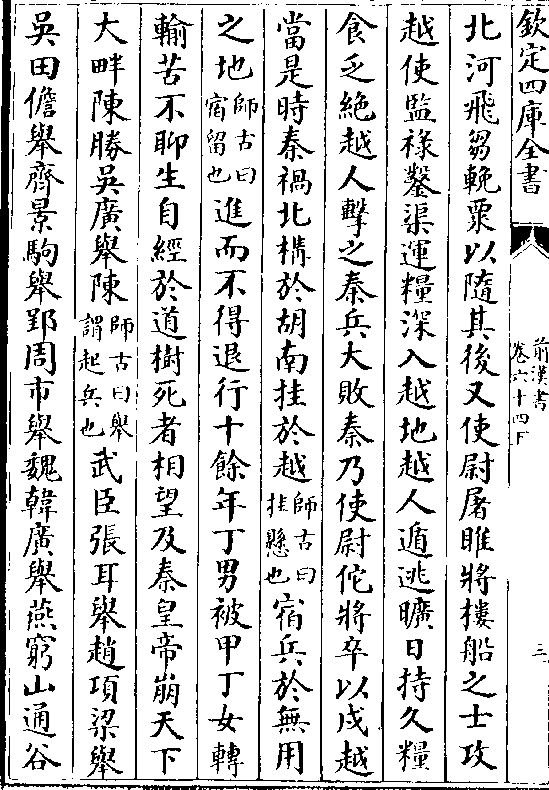 欽定四庫全書
前漢書
卷六十四下
三
北河飛芻輓粟以隨其後又使尉屠睢將樓船之士攻
越使監祿鑿渠運糧深入越地越人遁逃曠日持久糧
食乏絶越人擊之秦兵大敗秦乃使尉佗將卒以戍越
當是時秦禍北構於胡南挂於越師古曰挂懸也宿兵於無用
之地師古曰宿留也進而不得退行十餘年丁男被甲丁女轉
輸苦不聊生自經於道樹死者相望及秦皇帝崩天下
大畔陳勝吳廣舉陳師古曰舉謂起兵也武臣張耳舉趙項梁舉
吳田儋舉齊景駒舉郢周市舉魏韓廣舉燕窮山通谷